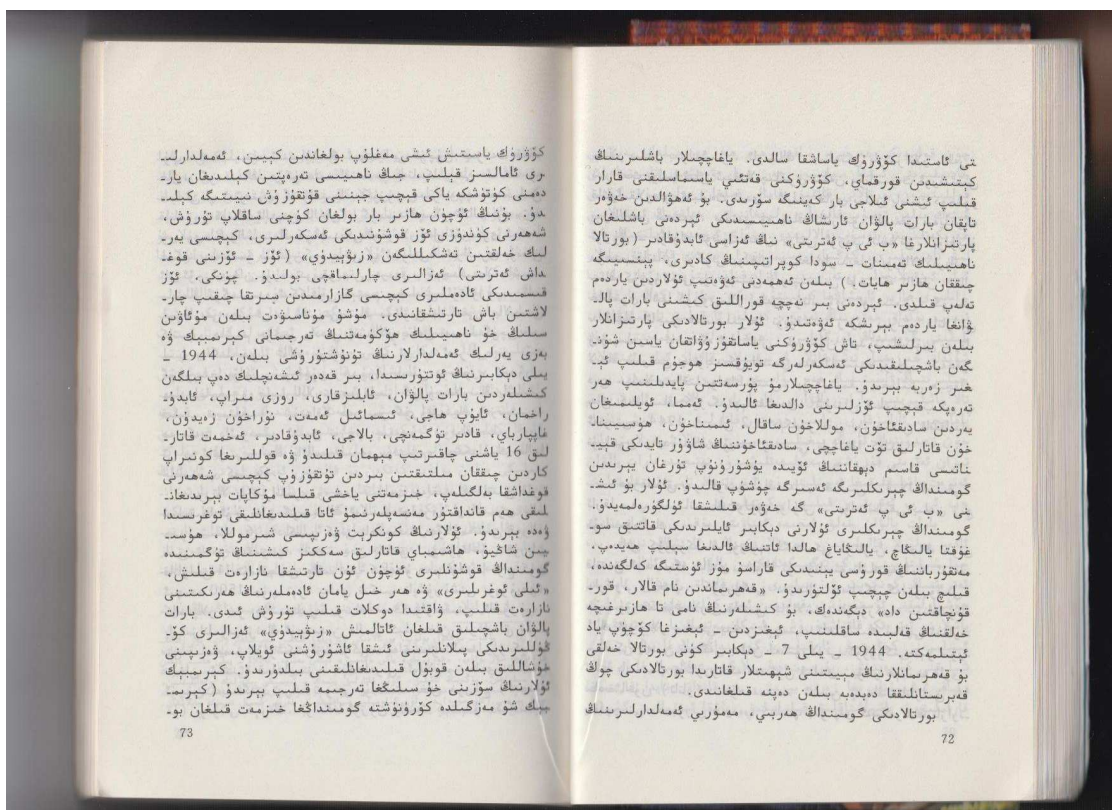 تى ئاستىدا كۆۋرۈك ياساشقا سالدى. ياغاچچىلار باشلىرىنىڭ
كېتىشىدىن قورقماي، كۆۋرۈكنى قەتئىي ياسىماسلىقنى قارار
قىلىپ ئىشنى ئىلاجى بار كەينىگە سۆرىدى. بۇ ئەھۋالدىن خەۋەر
تاپقان بارات پالۋان ئارىشاڭ ناھىيىسىدىكى ئېردەنى باشلىغان
پارتىزانلارغا «ب ئى پ ئەترىتى» نىڭ ئەزاسى ئابدۇقادىر (بورتالا
ناھىيىلىك تەمىنات ـ سودا كوپىراتىپىنىڭ كادىرى، پېنسىيىگە
چىققان ھازىر ھايات.) بىلەن ئەھمەدنى ئەۋەتىپ ئۇلاردىن ياردەم
تەلەپ قىلدى. ئېردەنى بىر نەچچە قوراللىق كىشىنى بارات پال‍ـ
ۋانغا ياردەم بېرىشكە ئەۋەتىدۇ. ئۇلار بورتالادىكى پارتىزانلار
بىلەن بىرلىشىپ، تاش كۆۋرۈكنى ياساتقۇزۇۋاتقان ياسىن شۇن‍ـ
گەن باشچىلىقىدىكى ئەسكەرلەرگە تويۇقسىز ھوجۇم قىلىپ ئې‍ـ
غىر زەربە بېرىدۇ. ياغاچچىلارمۇ پۇرسەتتىن پايدىلىنىپ ھەر
تەرەپكە قېچىپ ئۆزلىرىنى دالدىغا ئالىدۇ. ئەمما، ئويلىمىغان
يەردىن سادىقئاخۇن، موللاخۇن ساقال، ئىمىناخۇن، ھۈسىيىنا‍ـ
خۇن قاتارلىق تۆت ياغاچچى، سادىقئاخۇننىڭ شاۋۇر تايدىكى قېي‍ـ
ناتىسى قاسىم دېھقاننىڭ ئۆيىدە يۇشۇرۇنۇپ تۇرغان يېرىدىن
گومىنداڭ چېرىكلىرىگە ئەسىرگە چۈشۈپ قالىدۇ. ئۇلار بۇ ئىش‍ـ
نى «ب ئى پ ئەترىتى» گە خەۋەر قىلىشقا ئۈلگۈرەلمەيدۇ.
گومىنداڭ چېرىكلىرى ئۇلارنى دېكابىر ئايلىرىدىكى قاتتىق سو‍ـ
غۇقتا يالىڭاچ، يالىڭاياغ ھالدا ئاتنىڭ ئالدىغا سېلىپ ھەيدەپ،
مەتقۇرباننىڭ قوروسى يېنىدىكى قاراسۇ مۇز ئۈستىگە كەلگەندە،
قىلىچ بىلەن چېچىپ ئۆلتۈرىدۇ. «قەھرىماندىن نام قالار، قور‍ـ
قۇنچاقتىن داد» دېگەندەك، بۇ كىشىلەرنىڭ نامى تا ھازىرغىچە
خەلقنىڭ قەلبىدە ساقلىنىپ، ئېغىزدىن ـ ئېغىزغا كۆچۈپ ياد
ئېتىلمەكتە. 1944 ـ يىلى 7 ـ دېكابىر كۈنى بورتالا خەلقى
بۇ قەھرىمانلارنىڭ مېيىتىنى شېھىتلار قاتارىدا بورتالادىكى چوڭ
قەبرىستانلىققا دەبدەبە بىلەن دەپنە قىلغانىدى.
بورتالادىكى گومىنداڭ ھەربىي، مەمۇرىي ئەمەلدارلىرىنىڭ
72
كۆۋرۈك ياسىتىش ئىشى مەغلۇپ بولغاندىن كېيىن، ئەمەلدارلى‍ـ
رى ئامالسىز قىلىپ، جىڭ ناھىيىسى تەرەپتىن كېلىدىغان يار‍ـ
دەمنى كۈتۈشكە ياكى قېچىپ جېنىنى قۇتقۇزۇش نىيىتىگە كېلى‍ـ
دۇ. بۇنىڭ ئۈچۈن ھازىر بار بولغان كۈچنى ساقلاپ تۇرۇش،
شەھەرنى كۈندۈزى ئۆز قوشۇنىدىكى ئەسكەرلىرى، كېچىسى يەر‍ـ
لىك خەلقتىن تەشكىللىگەن «زىۋېيدۈي» (ئۆز ـ ئۆزىنى قوغ‍ـ
داش ئەترىتى) ئەزالىرى چارلىماقچى بولىدۇ. چۈنكى، ئۆز
قىسمىدىكى ئادەملىرى كېچىسى گازارمىدىن سىرتقا چىقىپ چار‍ـ
لاشتىن باش تارتىشقانىدى. مۇشۇ مۇناسىۋەت بىلەن مۇئاۋىن
سىلىڭ خۇ ناھىيىلىك ھۆكۈمەتنىڭ تەرجىمانى كېرىمبېيك ۋە
بەزى يەرلىك ئەمەلدارلارنىڭ تۇنۇشتۇرۇشى بىلەن، 1944 ـ
يىلى دېكابىرنىڭ ئوتتۇرىسىدا، بىر قەدەر ئىشەنچلىك دەپ بىلگەن
كىشىلەردىن بارات پالۋان، ئابلىزقارى، روزى مىراپ، ئابدۇ‍ـ
راخمان، ئايۇپ ھاجى، ئىسمائىل ئەمەت، نۇراخۇن زەيدۇن،
غاپپارباي، قادىر تۈگمەنچى، بالاجى، ئابدۇقادىر، ئەخمەت قاتار‍ـ
لىق 16 ياشنى چاقىرتىپ مېھمان قىلىدۇ ۋە قوللىرىغا كونىراپ
كاردىن چىققان مىلتىقتىن بىردىن تۇتقۇزۇپ كېچىسى شەھەرنى
قوغداشقا بەلگىلەپ، خىزمەتنى ياخشى قىلسا مۇكاپات بېرىدىغان‍ـ
لىقى ھەم قانداقتۇر مەنسەپلەرنىمۇ ئاتا قىلىدىغانلىقى توغرىسىدا
ۋەدە بېرىدۇ. ئۇلارنىڭ كونكرېت ۋەزىپىسى شىرموللا، ھۈسە‍ـ
يىن شاڭيۇ، ھاشىمباي قاتارلىق سەككىز كىشىنىڭ تۈگمىنىدە
گومىنداڭ قوشۇنلىرى ئۈچۈن ئۇن تارتىشقا نازارەت قىلىش،
«ئىلى ئوغرىلىرى» ۋە ھەر خىل يامان ئادەملەرنىڭ ھەرىكىتىنى
نازارەت قىلىپ، ۋاقتىدا دوكلات قىلىپ تۇرۇش ئىدى. بارات
پالۋان باشچىلىق قىلغان ئاتالمىش «زىۋېيدۈي» ئەزالىرى كۆ‍ـ
ڭۈللىرىدىكى پىلانلىرىنى ئىشقا ئاشۇرۇشنى ئويلاپ، ۋەزىپىنى
خۇشاللىق بىلەن قوبۇل قىلىدىغانلىقىنى بىلدۈرىدۇ. كېرىمبېيك
ئۇلارنىڭ سۆزىنى خۇ سىلىڭغا تەرجىمە قىلىپ بېرىدۇ (كېرىم‍ـ
بېيك شۇ مەزگىلدە كۆرۈنۈشتە گومىنداڭغا خىزمەت قىلغان بو‍ـ
73